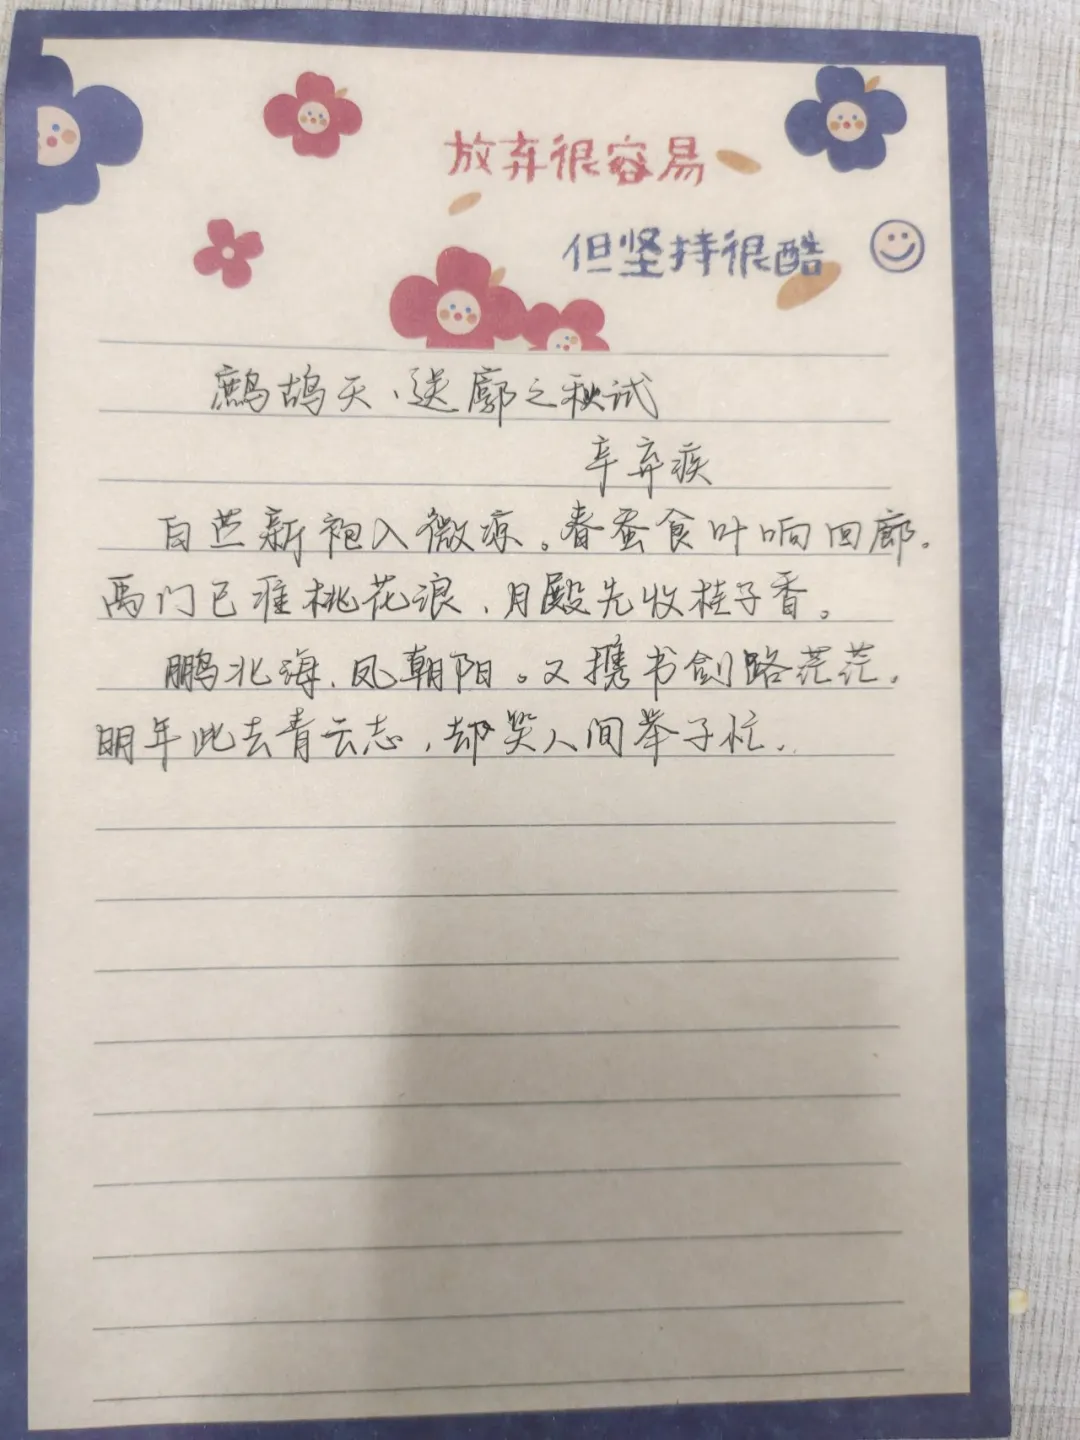 放弃很容易
但坚持很酷
鹧鸪天·送廓之秋试
辛弃疾
白苎新袍入微凉。春蚕食叶响回廊。
禹门已准桃花浪,月殿先收桂子香。
鹏北海,凤朝阳。又携书剑路茫茫。
明年此去青云志,却笑人间举子忙。